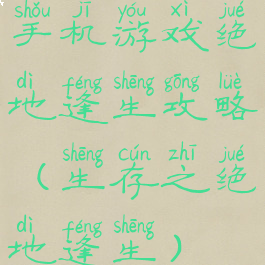 shǒu jī yóu xì jué
手机游戏绝
dì féng shēng gōng lüè
地逢生攻略
shēng cún zhī jué
（生存之绝
dì féng shēng
地逢生）